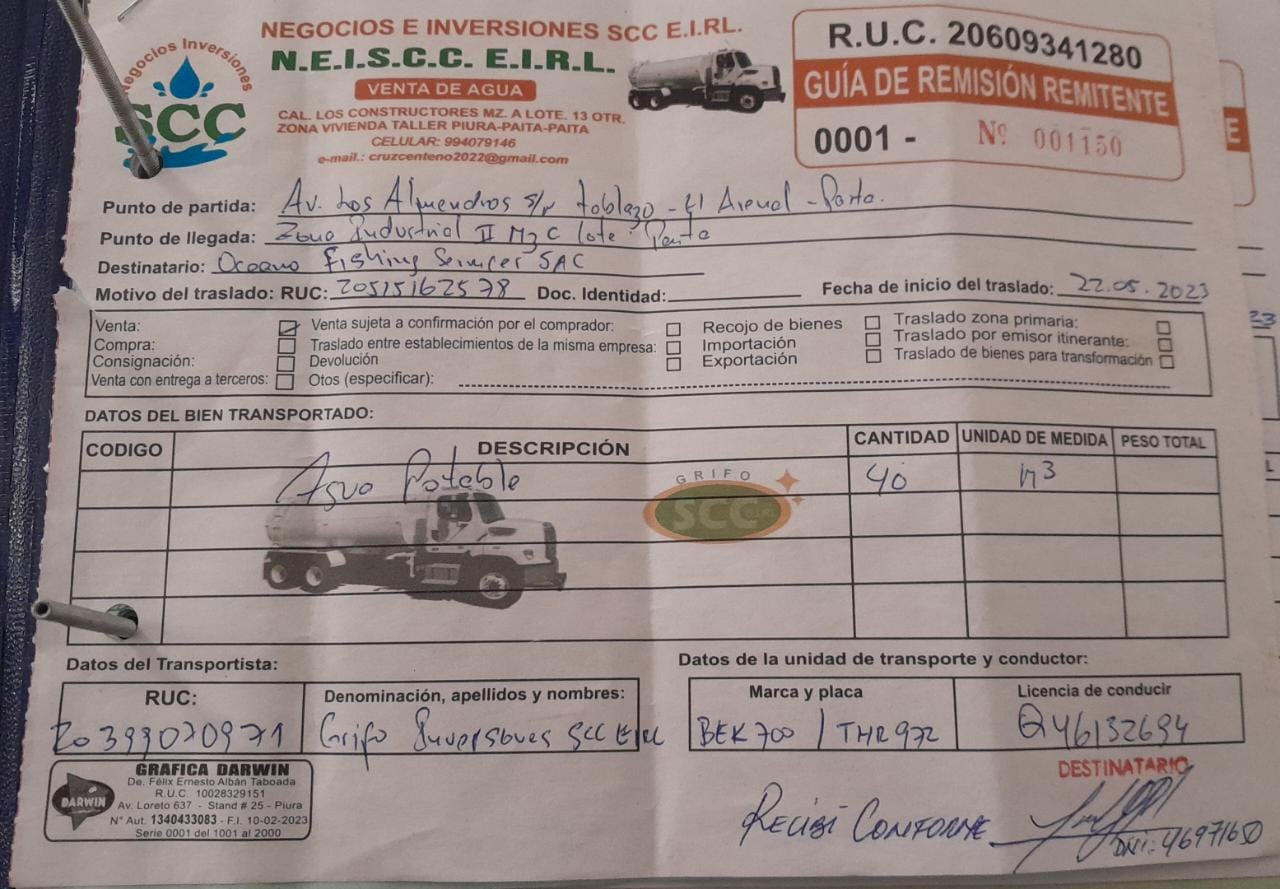 Negocios Inversiones
SCC
NEGOCIOS E INVERSIONES SCC E.I.RL.
N.E.I.S.C.C. E.I.R.L.
VENTA DE AGUA
CAL. LOS CONSTRUCTORES MZ. A LOTE. 13 OTR.
ZONA VIVIENDA TALLER PIURA-PAITA-PAITA
CELULAR: 994079146
e-mail.: cruzcenteno2022@gmail.com
R.U.C. 20609341280
GUÍA DE REMISIÓN REMITENTE
0001 - Nº 001150
Punto de partida: Av. Los Almendros s/n tablazo - El Arenal - Paita.
Punto de llegada: Zona Industrial II Mz C lote: Paita
Destinatario: Oceano Fishing Services SAC
Motivo del traslado: RUC: 20515162578 Doc. Identidad: Fecha de inicio del traslado: 22.05.2023
Venta: Venta sujeta a confirmación por el comprador: Recojo de bienes Traslado zona primaria:
Compra: Traslado entre establecimientos de la misma empresa: Importación Traslado por emisor itinerante:
Consignación: Devolución Exportación Traslado de bienes para transformación
Venta con entrega a terceros: Otos (especificar):
DATOS DEL BIEN TRANSPORTADO:
CODIGO DESCRIPCIÓN CANTIDAD UNIDAD DE MEDIDA PESO TOTAL
Agua Potable 40 m3
GRIFO
SCC E.I.RL.
Datos del Transportista: Datos de la unidad de transporte y conductor:
RUC: Denominación, apellidos y nombres: Marca y placa Licencia de conducir
20399070971 Grifo Inversiones SCC EIRL BEK700 / THR972 Q46132694
DARWIN
GRAFICA DARWIN
De. Félix Ernesto Albán Taboada
R.U.C. 10028329151
Av. Loreto 637 - Stand # 25 - Piura
N° Aut. 1340433083 - F.I. 10-02-2023
Serie 0001 del 1001 al 2000
DESTINATARIO
RECIBÍ CONFORME
DNI: 46971650